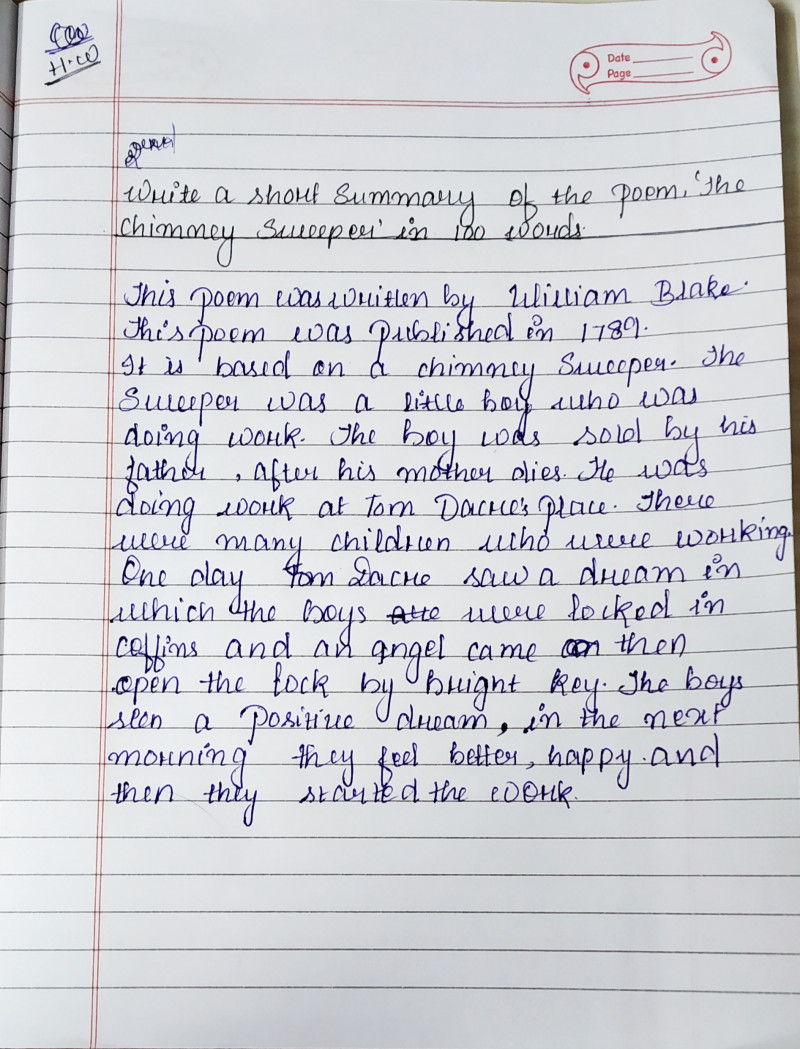 H.W
Date
Page
Write a short Summary of the poem, 'The
Chimney Sweeper' in 100 words.
This poem was written by William Blake.
This poem was published in 1789.
It is based on a chimney Sweeper. The
Sweeper was a little boy who was
doing work. The boy was sold by his
father, after his mother dies. He was
doing work at Tom Dacre's place. There
were many children who were working.
One day Tom Dacre saw a dream in
which the boys were locked in
coffins and an angel came then
open the lock by bright key. The boys
seen a positive dream, in the next
morning they feel better, happy and
then they started the work.